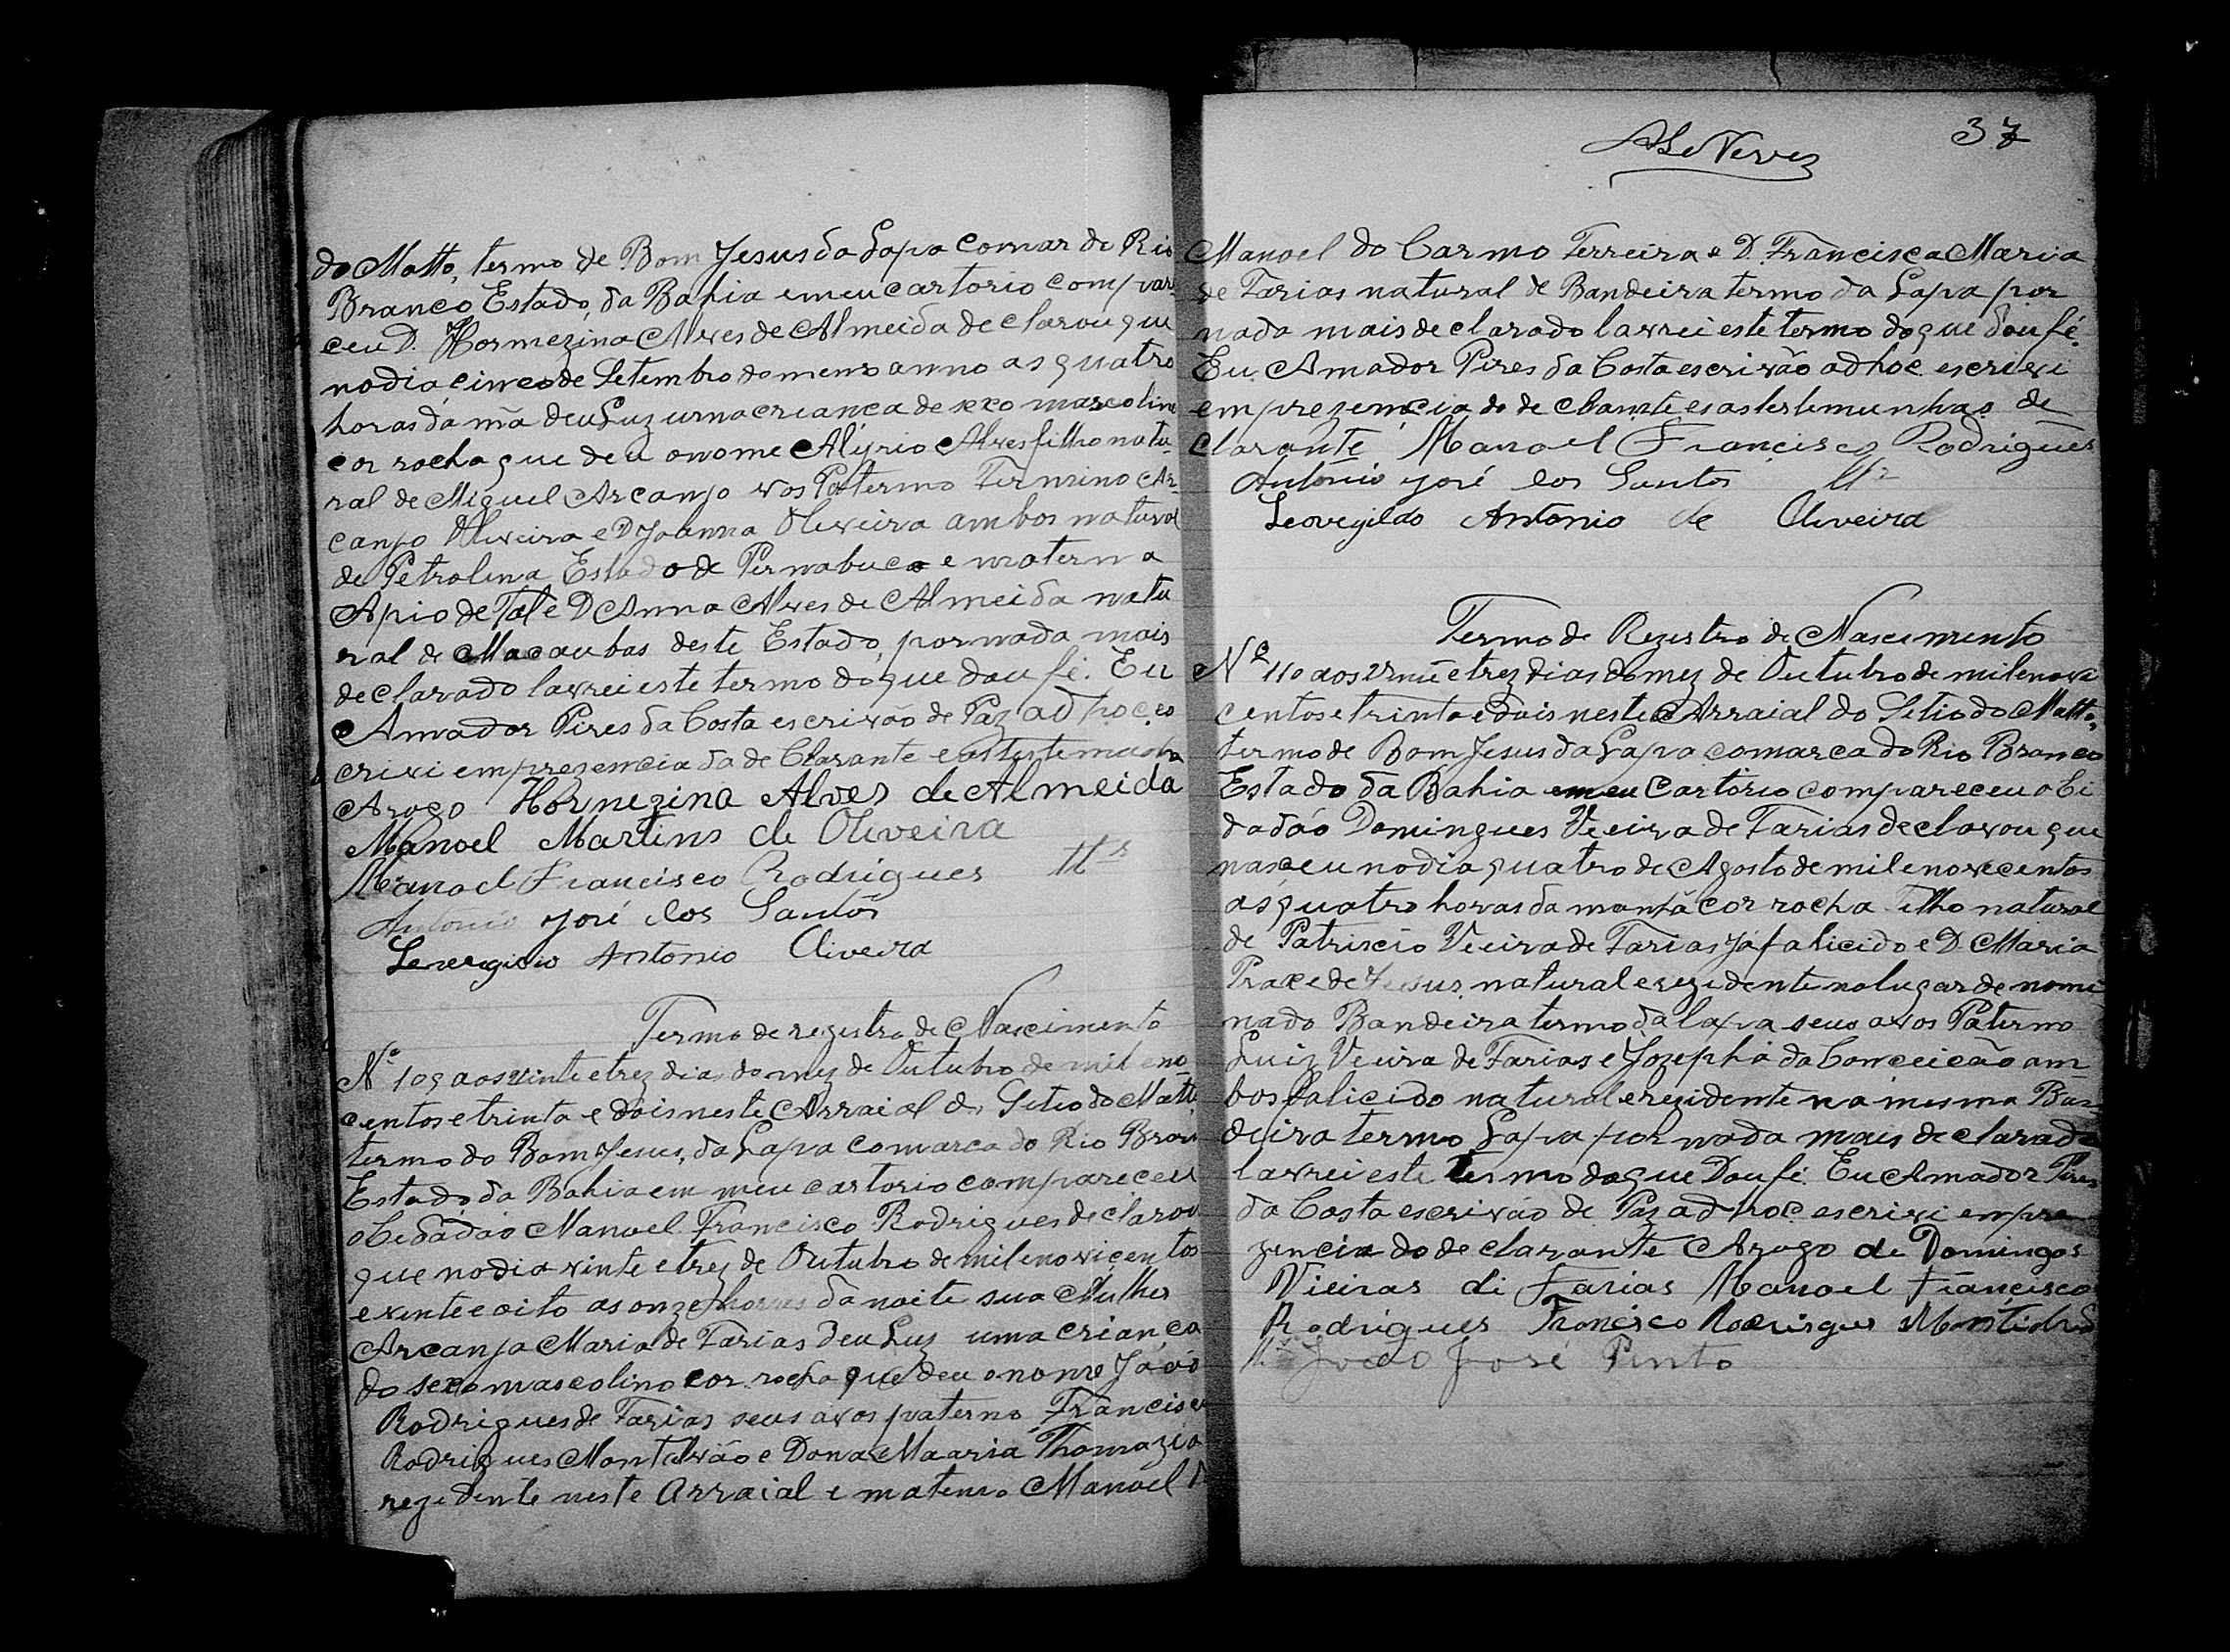 do Matto, termo de Bom Jesus da Lapa Comar de Rio
Branco Estado, da Bahia em eu cartorio compare
ceu D. Hormezina Alves de Almeida declarou que
no dia cinco de Setembro do anno as quatro
horas da mã deu Luz uma criança de sexo mascolino
cor rocha que deu o nome Alyrio Alves filho natu-
ral de Miguel Arcanjo vos Paterno Firmino Ar-
canjo Oliveira e D Joanna Oliveira ambos natural
de Petrolina Estado de Pernabuco e materna
Apio de Tal e D Anna Alves de Almeida natu
ral de Macaubas deste Estado, por nada mais
declarado lavrei este termo do que dou fé. Eu
Amador Pires da Costa escrivão de Paz ad hoc es
crivi em prezencia da de Clarante e as testemunha
Arogo Hormezina Alves de Almeida
Manoel Martins de Oliveira
Manoel Francisco Rodrigues
Antonio José dos Santos
Antonio Oliveira
Termo de registro de Nascimento
Nº 109 aos vinte e trez dias do mez de Outubro de mil eno
centos e trinta e dois neste Arraial do Setio do Matto
termo do Bom Jesus, da Lapa Comarca do Rio Bran
Estado da Bahia em meu cartorio compareceu
o Cedadão Manoel Francisco Rodrigues declarou
que no dia vinte e trez de Outubro de mil novicentos
e vinte e oito as onze horas da noite sua Mulher
Arcanja Maria de Farias deu Luz uma criança
do sexo mascolino cor rocha que deu o nome João
Rodrigues de Farias seus avos paterno Francisco
Rodrigues Montalvão e Dona Maaria Thomazia
rezidente neste Arraial e materno Manoel
37
Neves
Manoel do Carmo Ferreira e D. Francisca Maria
de Farias natural de Bandeira termo da Lapa por
nada mais declarado lavrei este termo do que dou fé.
Eu Amador Pires da Costa escrivão ad hoc escrevi
em prezencia do de clarante e as testemunhas de
clarante Manoel Francisco Rodrigues
Antonio José dos Santos
Leovegildo Antonio de Oliveira
Termo de Rezistro de Nascimento
Nº 110 aos e trez dias do mez de Outubro de mil enovi
centos e trinta e dois neste Arraial do Setio do Matto,
termo de Bom Jesus da Lapa comarca do Rio Branco
Estado da Bahia em eu Cartorio compareceu o Ci
dadão Domingues Vieira de Farias declarou que
nasceu no dia quatro de Agosto de mil enovecentos
as quatro horas da manhã cor rocha Filho natural
de Patriscio Vieira de Farias já falicido e D. Maria
Praxede Jesus, natural e rezidente no lugar denomi
nado Bandeira termo da lapa seus avos Paterno
Luiz Vieira de Farias e Jozepha da Conceicão am-
bos falicido natural e rezidente na mesma Ban
deira termo Lapa por nada mais declarado
lavrei este termo do que Dou fé. Eu Amador Pires
da Costa escrivão de Paz ad hoc escrivi em pre
zencia do declarante Arogo de Domingos
Vieiras di Farias Manoel Francisco
Rodrigues Francisco Rodrigues
João José Pinto